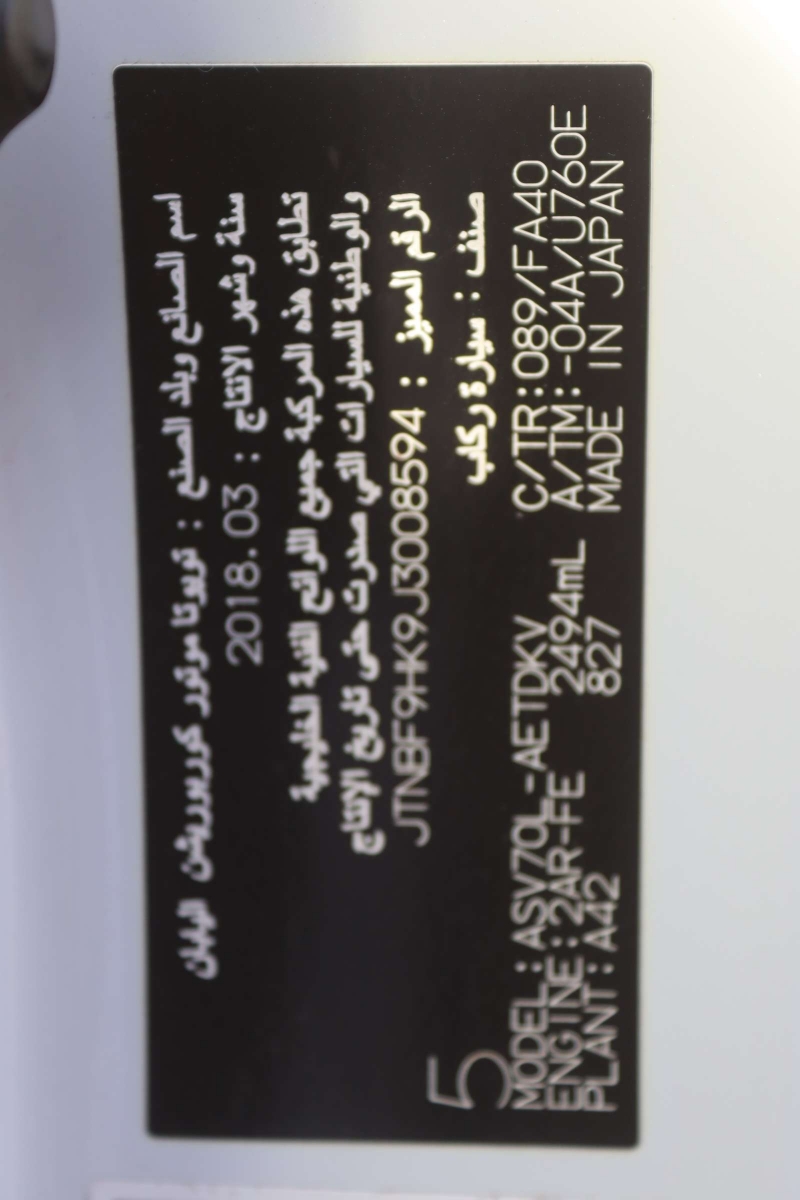 اسم الصانع وبلد الصنع : تويوتا موتور كوربوريشن اليابان
سنة وشهر الانتاج : 2018.03
تطابق هذه المركبة جميع اللوائح الفنية الخليجية
والوطنية للسيارات التي صدرت حتى تاريخ الإنتاج
الرقم المميز : JTNBF9HK9J3008594
صنف : سيارة ركاب
5
MODEL:ASV70L-AETDKV C/TR:089/FA40
ENGINE:2AR-FE 2494mL A/TM:-04A/U760E
PLANT:A42 827 MADE IN JAPAN